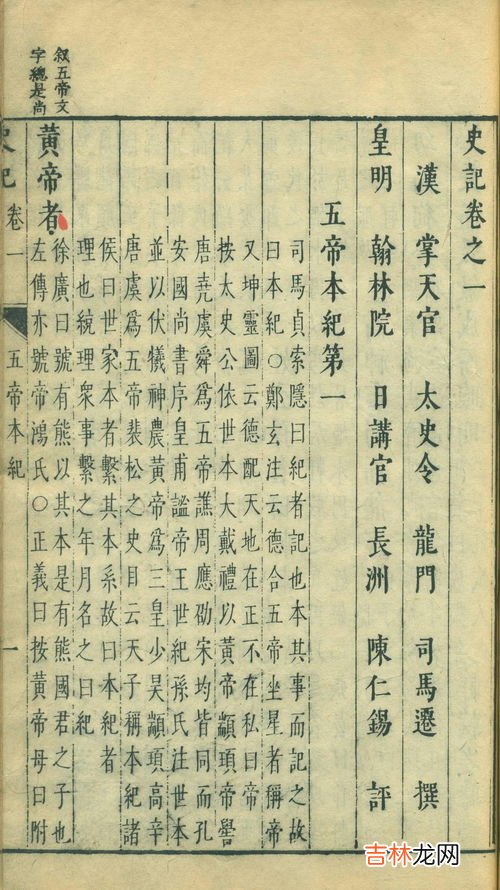 史記卷之一
漢 掌天官 太史令 龍門 司馬遷 撰
皇明 翰林院 日講官 長洲 陳仁錫 評
五帝本紀第一
司馬貞索隱曰紀者記也本其事而記之故
曰本紀○鄭玄注云德合五帝坐星者稱帝
又坤靈圖云德配天地在正不在私曰帝
按太史公依世本大戴禮以黃帝顓頊帝嚳
唐堯虞舜爲五帝譙周應劭宋均皆同而孔
安國尚書序皇甫謐帝王世紀孫氏注世本
並以伏犧神農黃帝爲三皇少昊顓頊高辛
唐虞爲五帝裴松之史目云天子稱本紀諸
侯曰世家本者繫其本系故曰本紀者
理也統理衆事繫之年月名之曰紀
黃帝者
徐廣曰號有熊以其本是有熊國君之子也
左傳亦號帝鴻氏○正義曰按黃帝母曰附
叙五帝文
字總是尚
史記 卷一 五帝本紀 一
吉林龙网